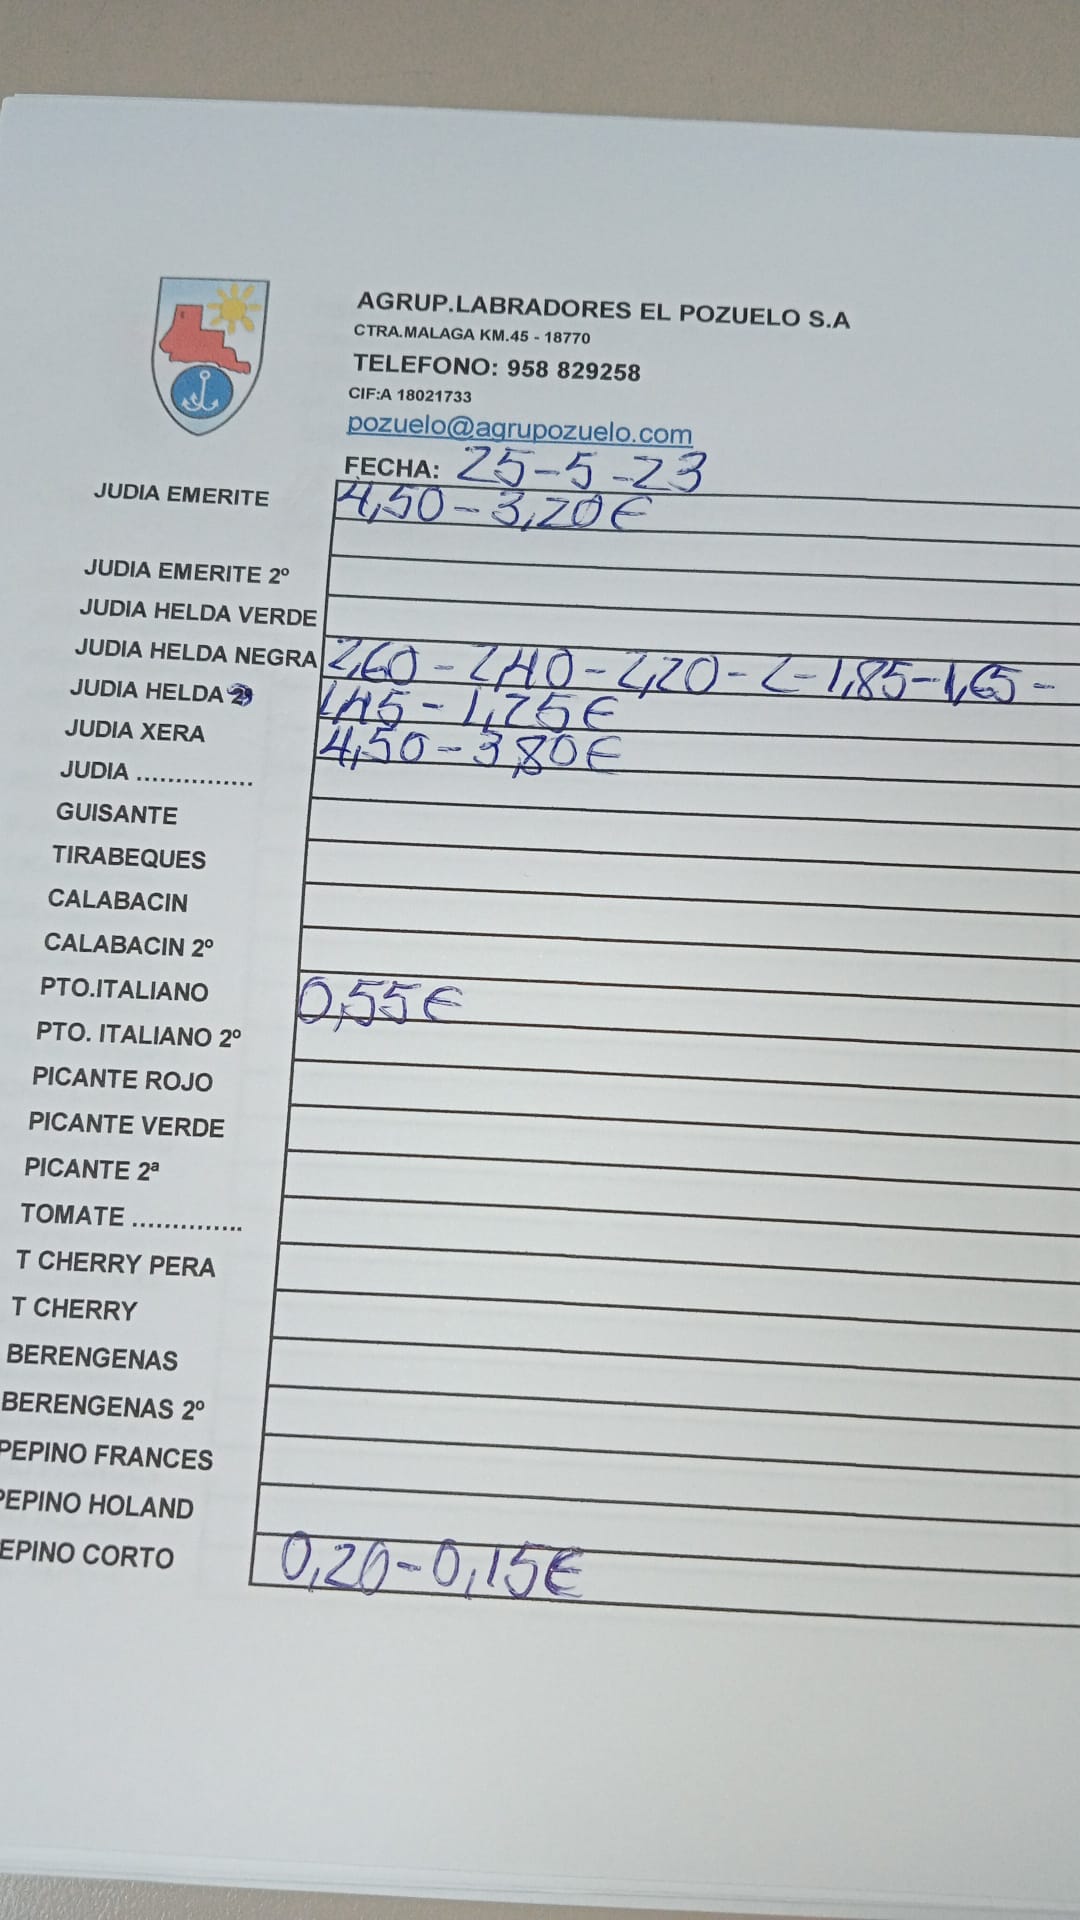 AGRUP.LABRADORES EL POZUELO S.A
CTRA.MALAGA KM.45 - 18770
TELEFONO: 958 829258
CIF:A 18021733
pozuelo@agrupozuelo.com
FECHA: 25-5-23
JUDIA EMERITE 4,50-3,20€
JUDIA EMERITE 2º
JUDIA HELDA VERDE
JUDIA HELDA NEGRA 2,60-2,40-2,20-2-1,85-1,65-
JUDIA HELDA 1,45-1,25€
JUDIA XERA 4,50-3,80€
JUDIA ..............
GUISANTE
TIRABEQUES
CALABACIN
CALABACIN 2º
PTO.ITALIANO 0,55€
PTO. ITALIANO 2º
PICANTE ROJO
PICANTE VERDE
PICANTE 2ª
TOMATE ..............
T CHERRY PERA
T CHERRY
BERENGENAS
BERENGENAS 2º
PEPINO FRANCES
PEPINO HOLAND
EPINO CORTO 0,20-0,15€